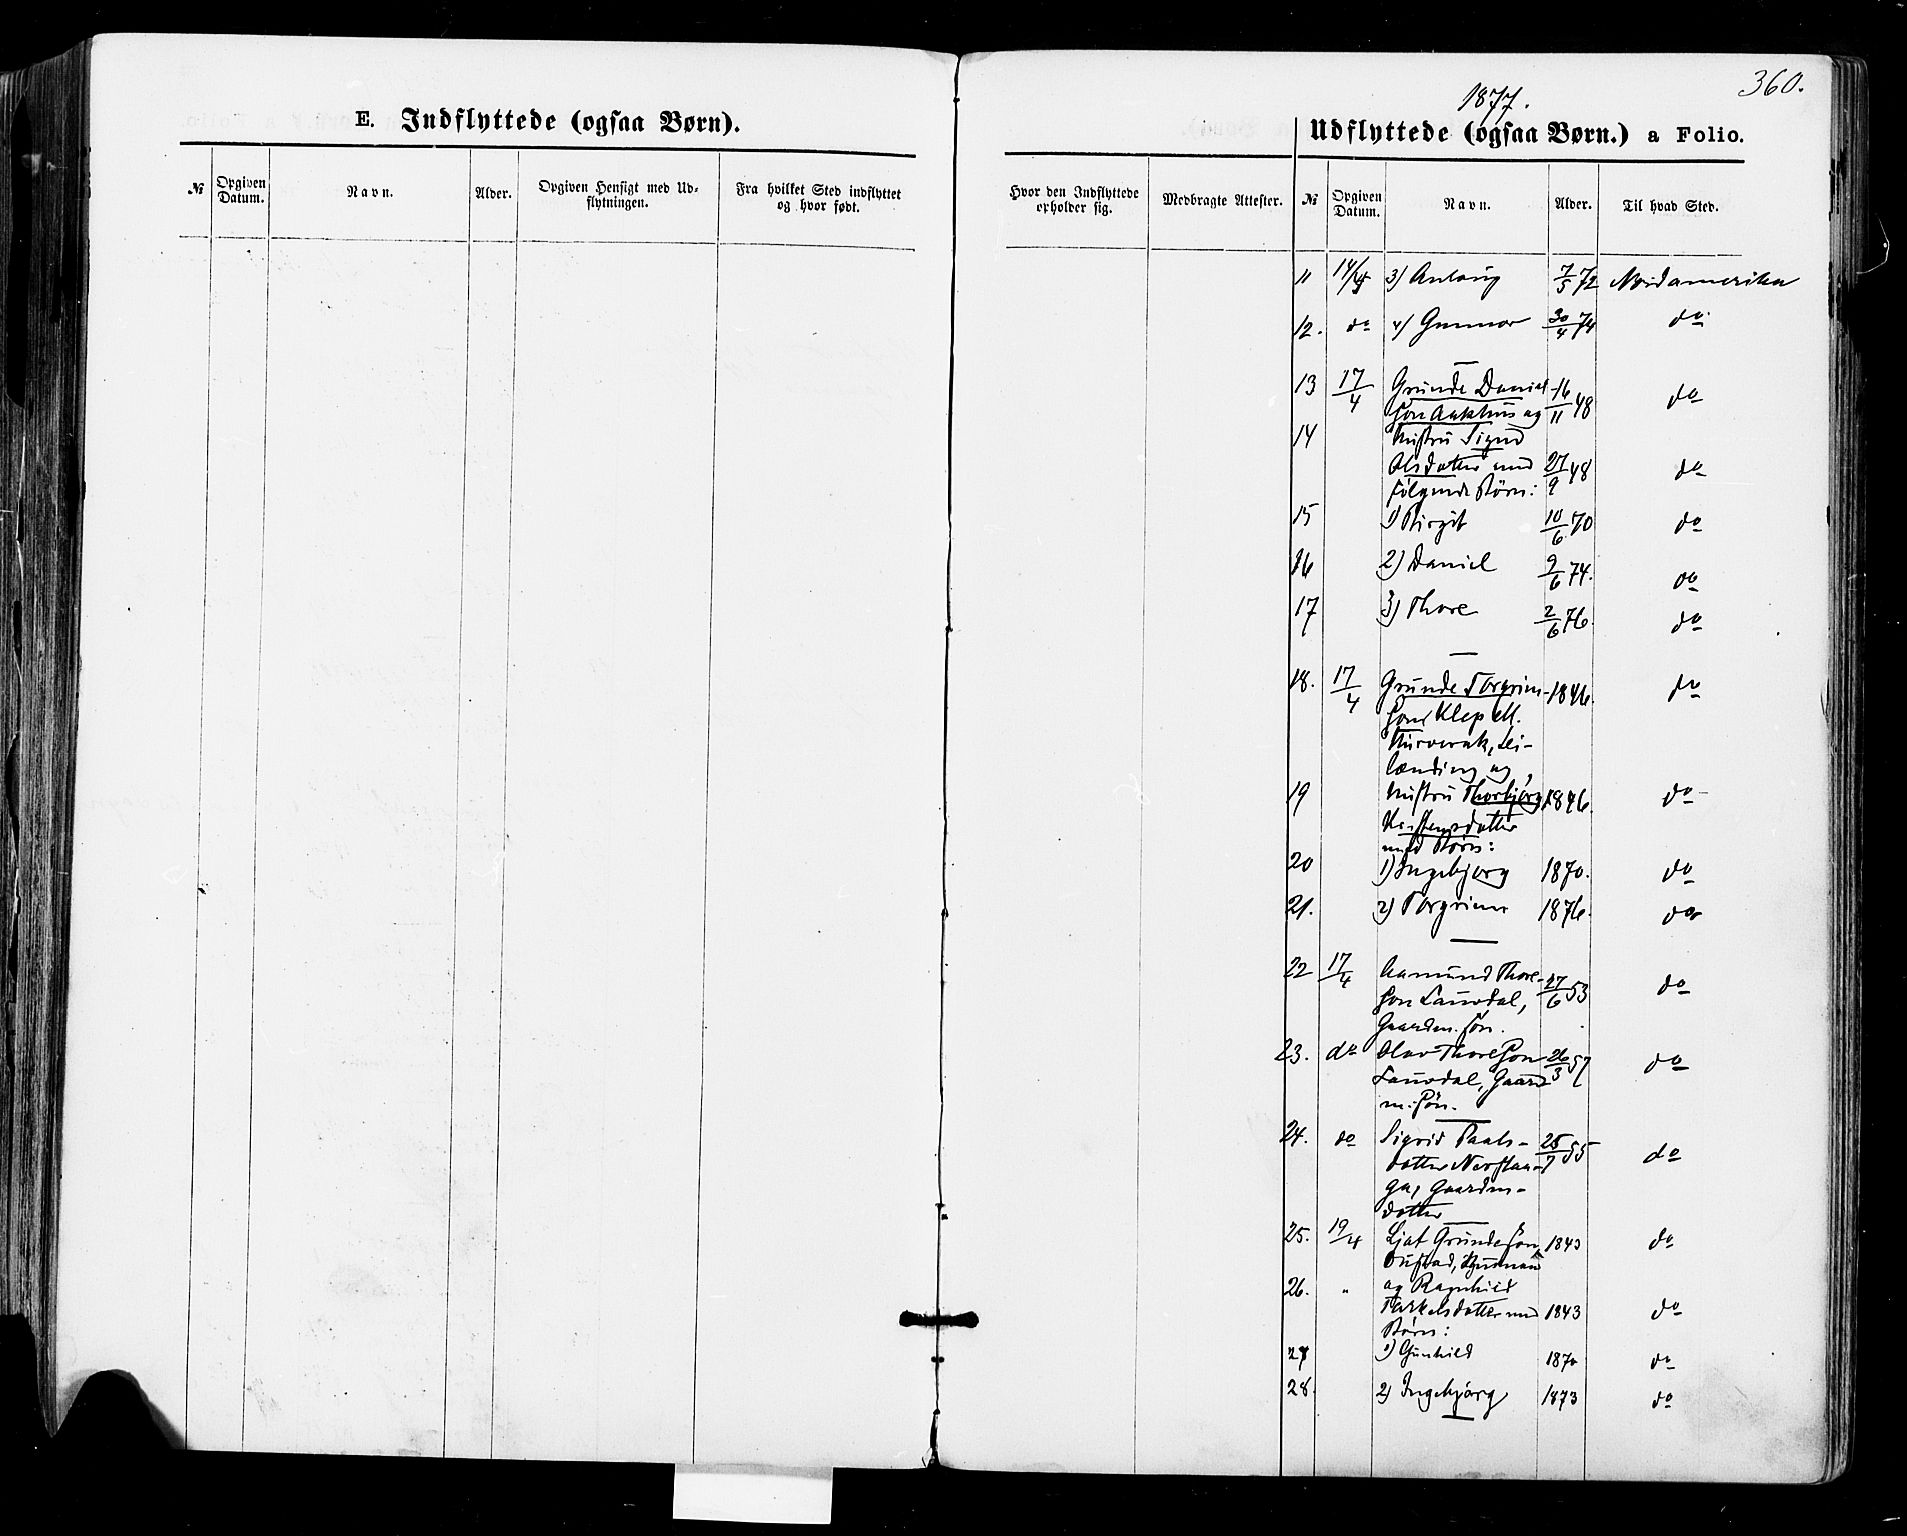 360.
1877.
E. Indflyttede (ogsaa Børn).
Udflyttede (ogsaa Børn.) a Folio.
№ Opgiven Datum. Navn. Alder. Opgiven Hensigt med Udflytningen. Fra hvilket Sted indflyttet og hvor født.
Hvor den Indflyttede opholder sig. Medbragte Attester. № Opgiven Datum. Navn. Alder. Til hvad Sted.
11 14/4 3) Anlaug 7/5 72 Nordamerika
12. do 4) Gunnar 30/4 74 do
13 17/4 Grunde Daniel- 16/11 48 do
søn Aakhus og
14 Hustru Signe
Olsdatter med 27/9 48 do
følgende Børn:
15 1) Birgit 10/6 70 do
16 2) Daniel 9/6 74. do
17 3) Thore 2/6 76. do
18. 17/4 Grunde Torgrim- 1846. do
søn Klep
lænding og
19 Hustru Thorbjørg 1846. do
datter
med Børn:
20 1) Ingebjørg 1870. do
21. 2) Torgrim 1876. do
22 17/4 Aamund Thore- 27/6 53 do
søn Lauvdal,
Gaardm. søn.
23. do Olav Thoresøn 26/3 57 do
Lauvdal, Gaard
m. søn.
24. do Sigrid Paals- 25/7 55 do
datter Nerstau-
ga, Gaardm-
datter
25. 19/4 Ljot Grundesøn, 1843 do
26. " og Ragnhild
Tarkelsdatter med 1843 do
Børn:
27 1) Gunhild 1870 do
28. 2) Ingebjørg 1873 do